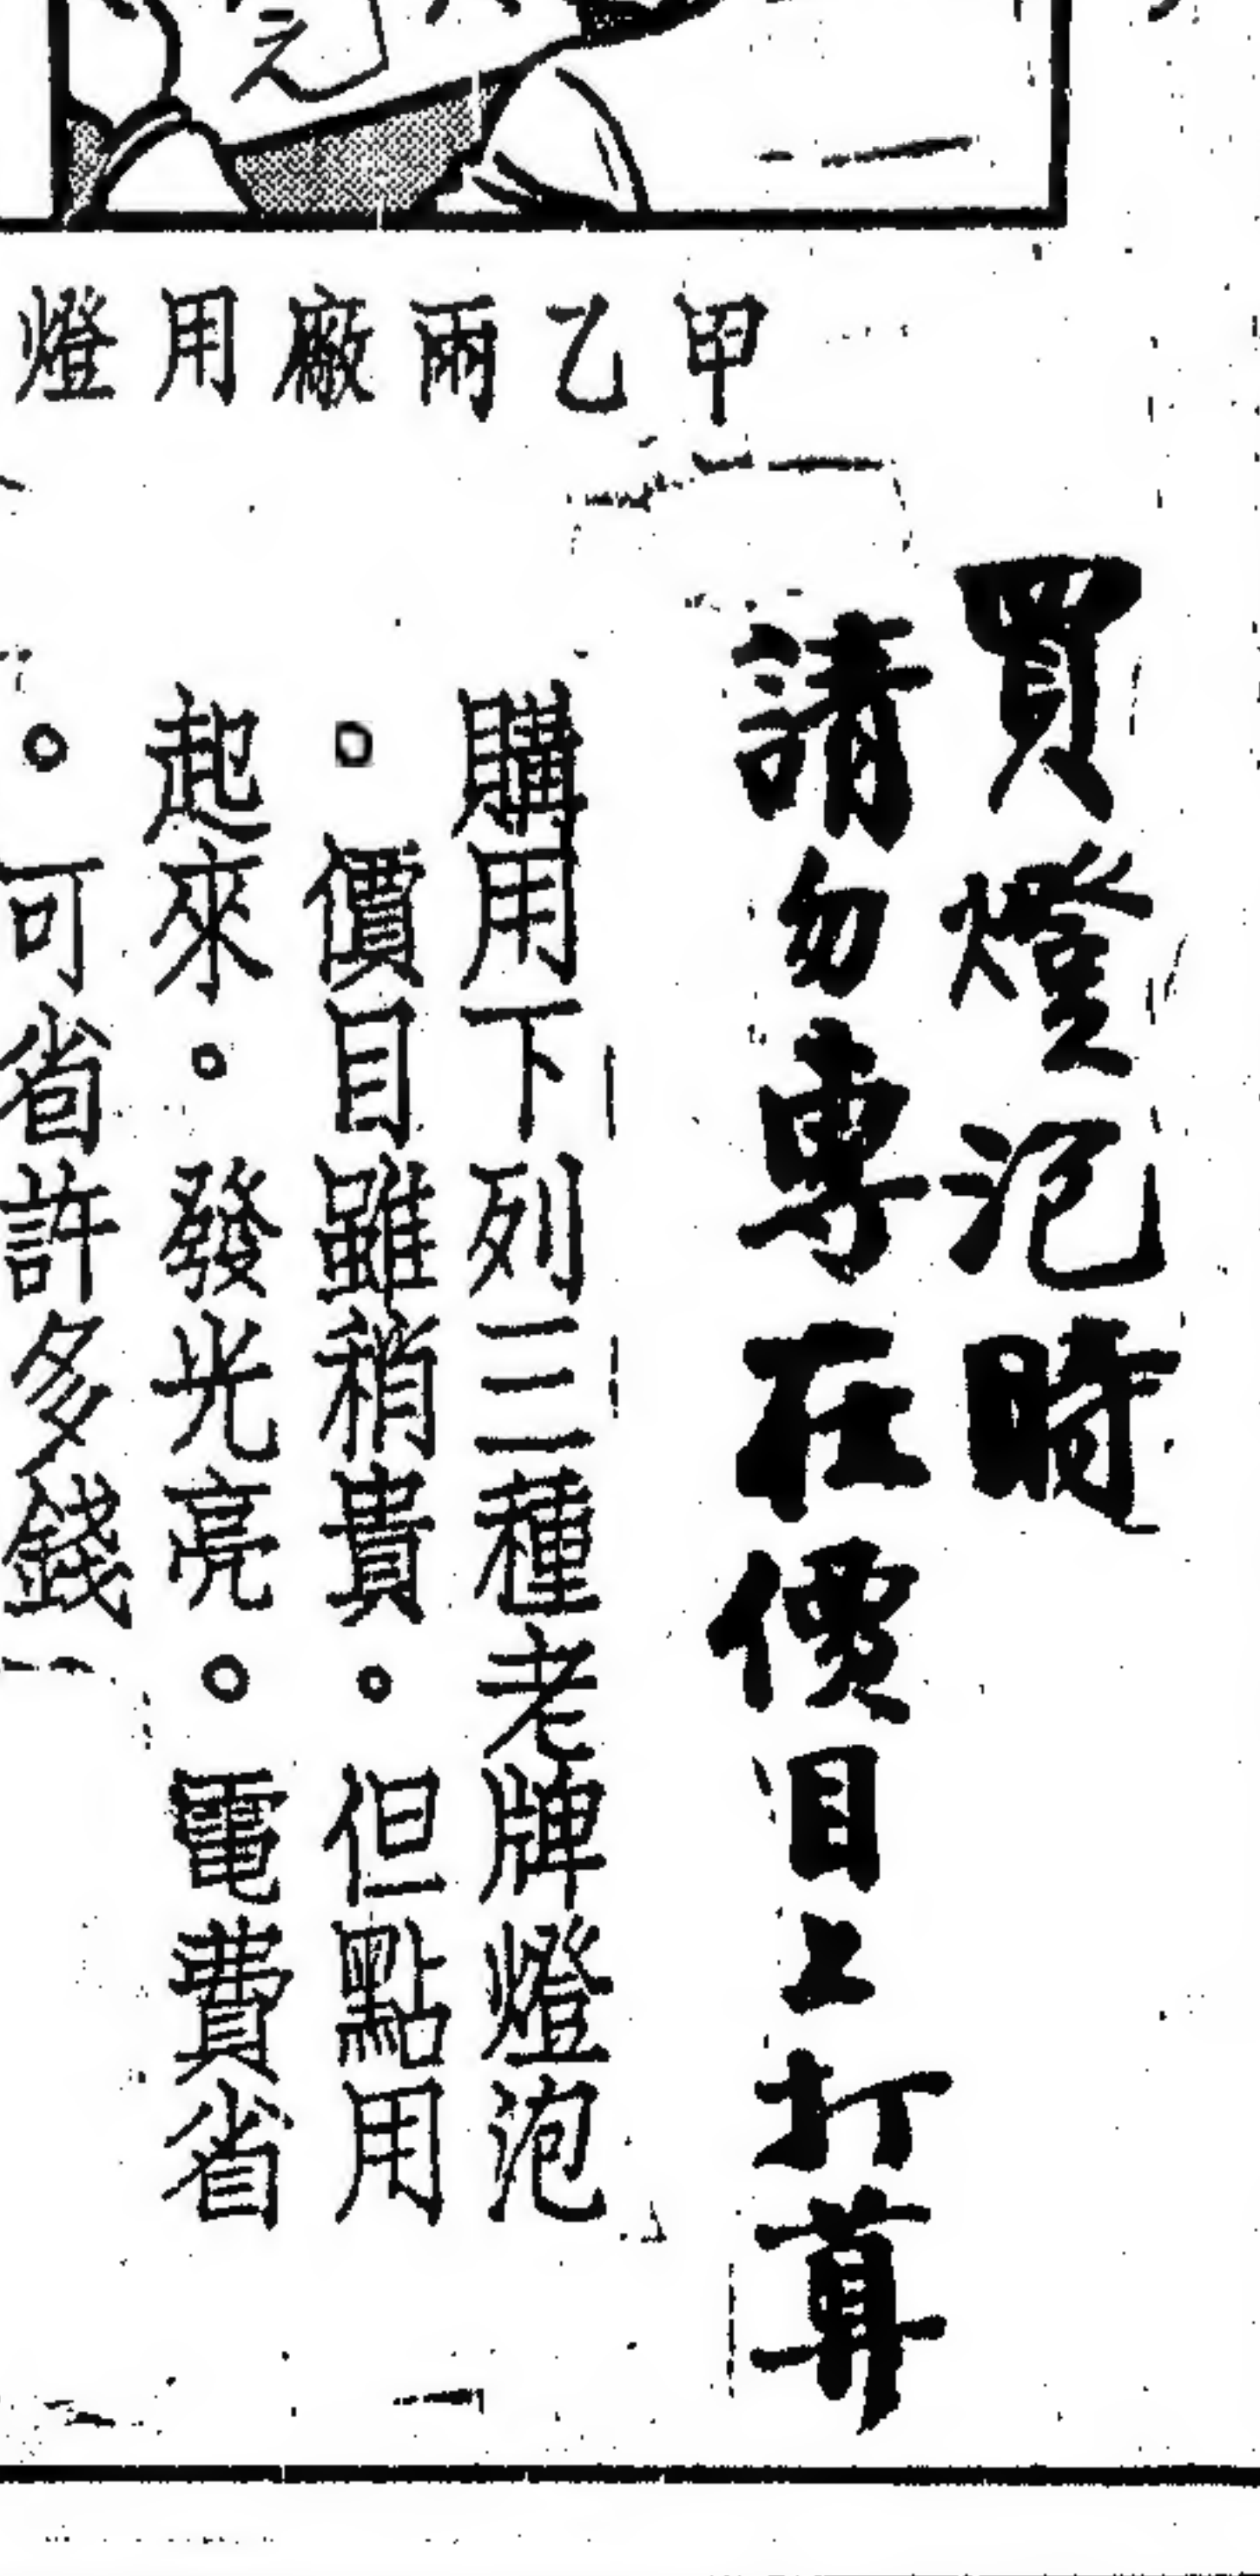 元
甲乙兩廠用燈
買燈泡時
請勿專在價目上打算
購用下列三種老牌燈泡
。價目雖稍貴。但點用
起來。發光亮。電費省
。可省許多錢